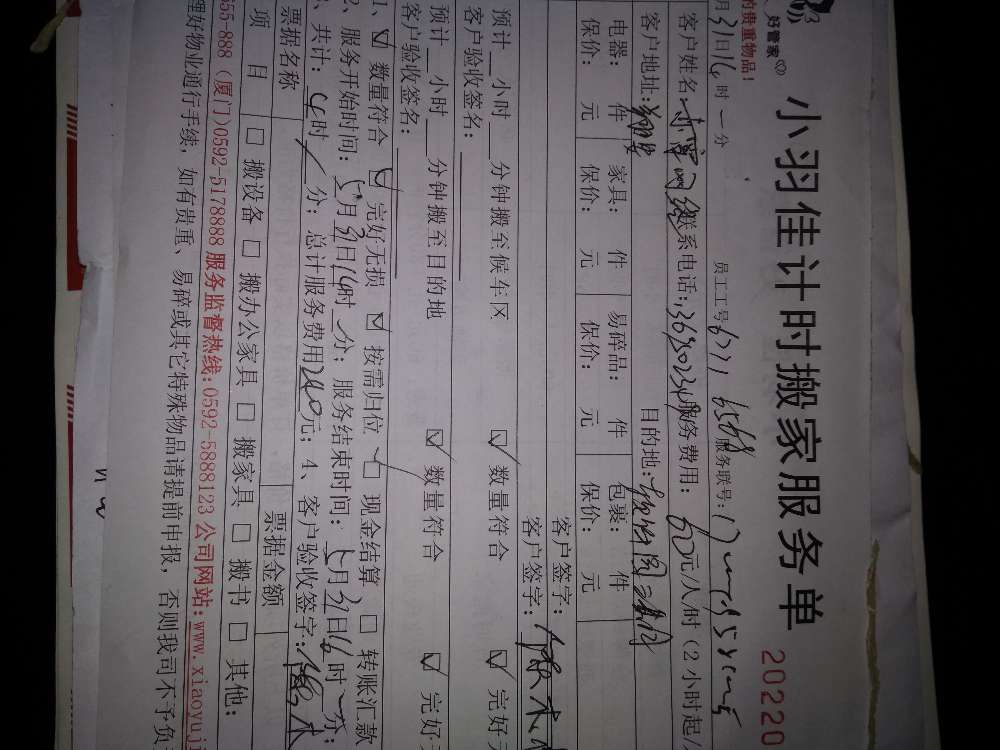 好管家
小羽佳计时搬家服务单
20220
的贵重物品！
月31日16时一分
员工工号6771 6568
服务联号：
客户姓名
联系电话：
服务费用：60元/人/时（2小时起/
客户地址：翔安
目的地：
电器： 件
家具： 件
易碎品： 件
包裹： 件
保价： 元
保价： 元
保价： 元
保价： 元
客户签字：
客户签字：
预计 小时 分钟搬至候车区
数量符合
完好无
客户验收签名：
预计 小时 分钟搬至目的地
数量符合
完好无
客户验收签名：
1、 数量符合 完好无损 按需归位 现金结算 转账汇款
2、服务开始时间：5月31日14时一分；服务结束时间：5月31日16时一分；
3、共计：4时/分；总计服务费用240元；4、客户验收签字：
票据名称
票据金额
项目
搬设备 搬办公家具 搬家具 搬书 其他：
555-888（厦门）0592-5178888 服务监督热线：0592-5888123 公司网站：www.xiaoyuji
理好物业通行手续，如有贵重、易碎或其它特殊物品请提前申报，否则我司不予负